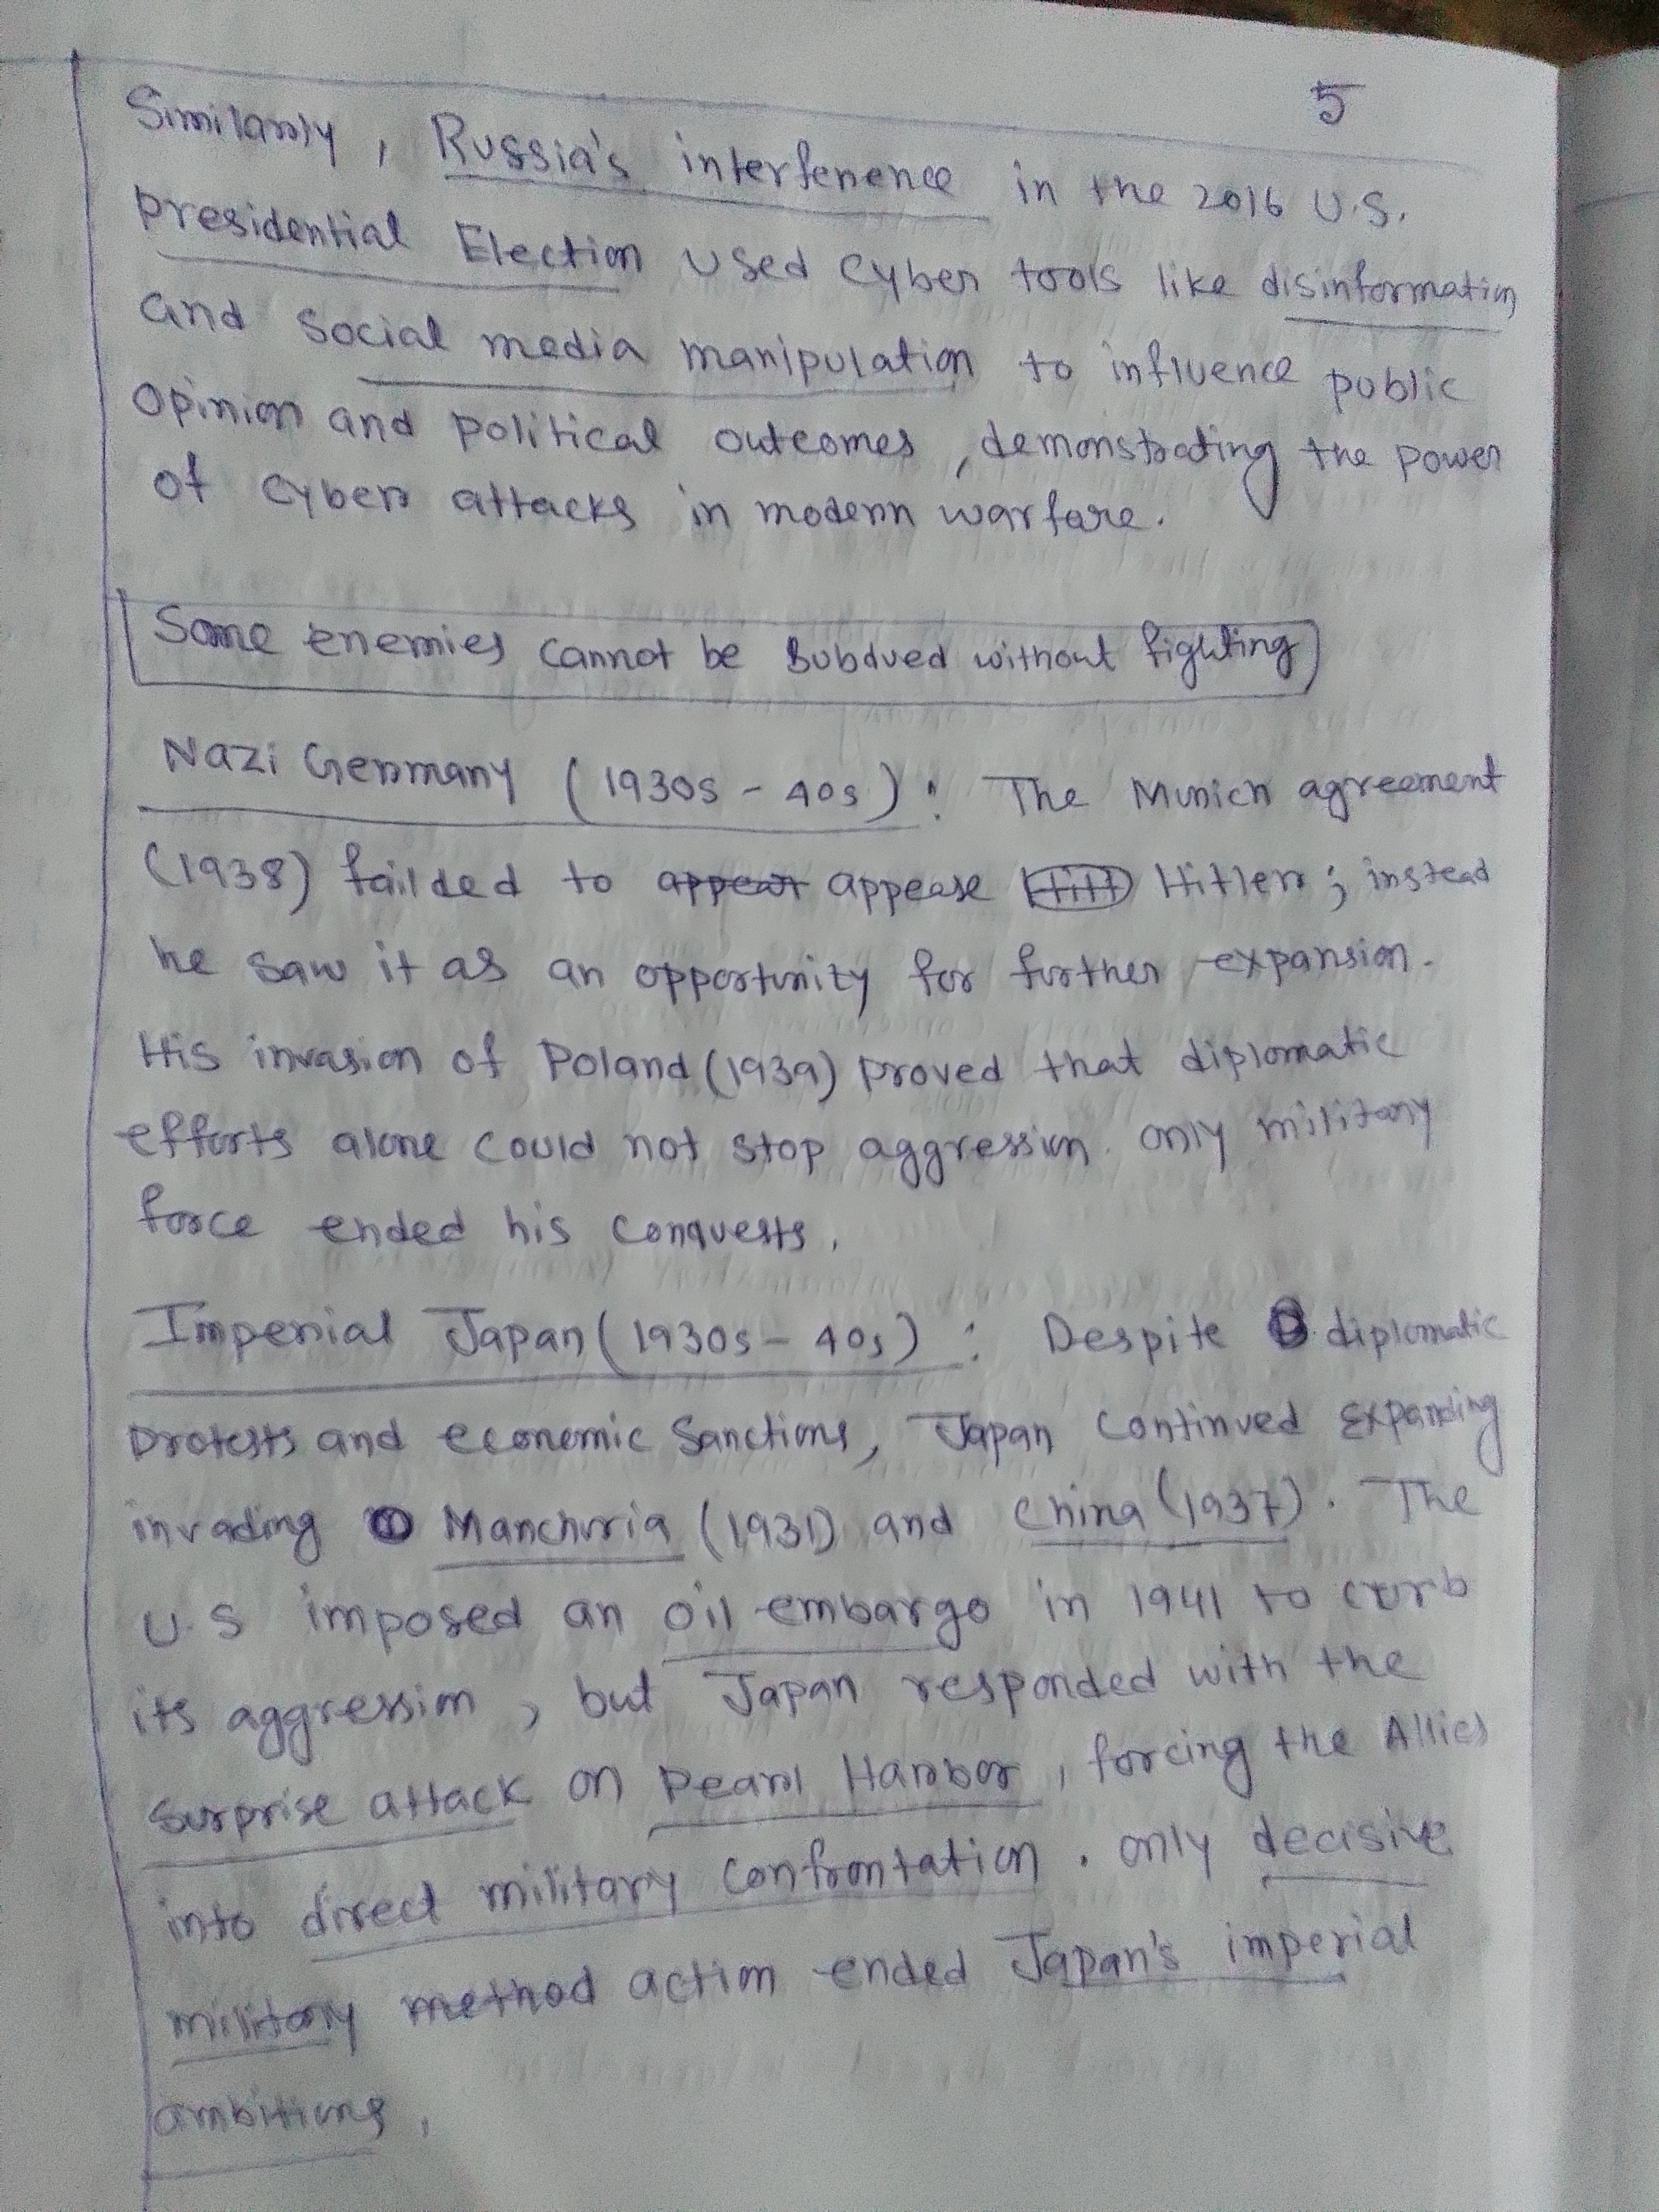 5
Similarly, Russia's interference in the 2016 U.S.
Presidential Election used cyber tools like disinformation
and social media manipulation to influence public
opinion and political outcomes, demonstrating the power
of cyber attacks in modern warfare.
Some enemies cannot be subdued without fighting
Nazi Germany (1930s - 40s): The Munich agreement
(1938) failded to appear appease Hitl Hitler; instead
he saw it as an opportunity for further expansion.
His invasion of Poland (1939) proved that diplomatic
efforts alone could not stop aggression. only military
force ended his conquests.
Imperial Japan (1930s - 40s): Despite diplomatic
protests and economic sanctions, Japan continued expanding
invading Manchuria (1931) and China (1937). The
U.S imposed an oil embargo in 1941 to curb
its aggression, but Japan responded with the
surprise attack on Pearl Harbor, forcing the Allies
into direct military confrontation. only decisive
military method action ended Japan's imperial
ambitions.